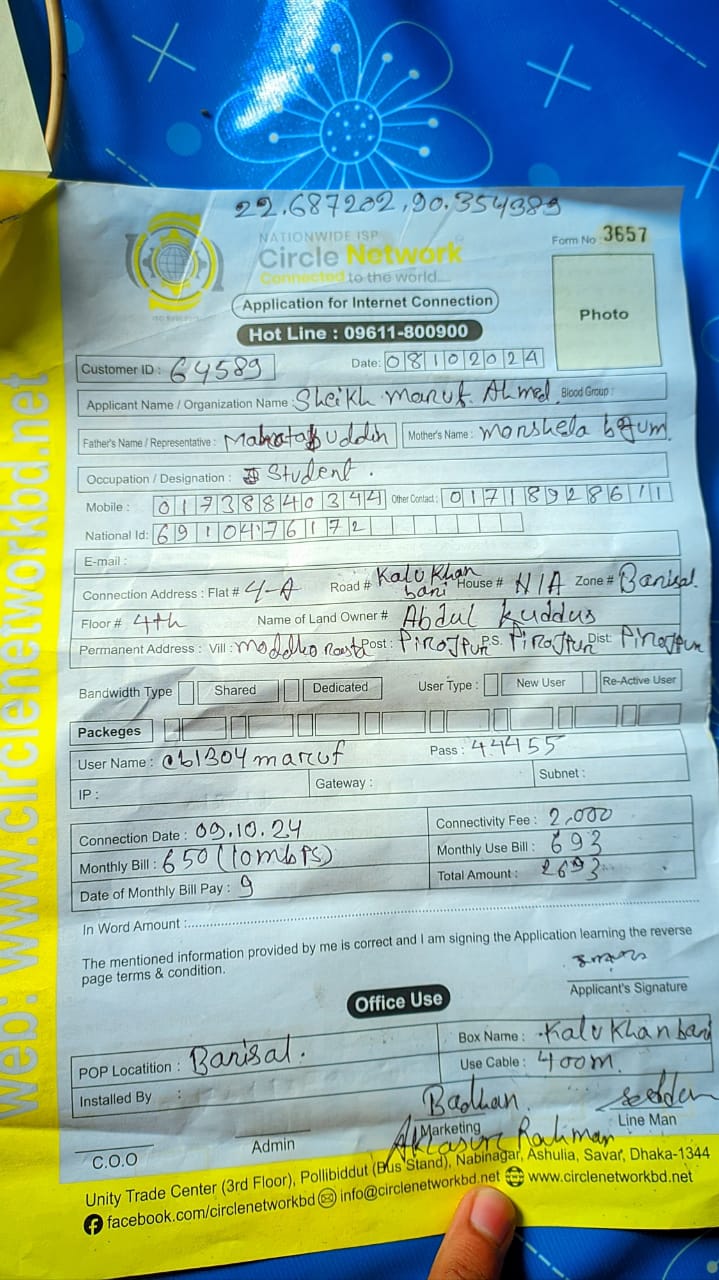 22.687202,90.354389
NATIONWIDE ISP
Circle Network
Connected to the world....
Form No 3657
Photo
Application for Internet Connection
Hot Line : 09611-800900
Customer ID : 64589 Date: 08102024
Applicant Name / Organization Name : Sheikh maruf Ahmed Blood Group :
Father's Name / Representative : uddin Mother's Name : monshela begum
Occupation / Designation : Student.
Mobile : 01738840344 Other Contact : 01718928611
National Id: 6910476172
E-mail :
Connection Address : Flat # 4-A Road # Kalu Khan bari House # N/A Zone # Barisal.
Floor # 4th Name of Land Owner # Abdul Kuddus
Permanent Address : Vill : moddho Post : Pirojpur P.S. Pirojpur Dist: Pirojpur
Bandwidth Type Shared Dedicated User Type : New User Re-Active User
Packeges
User Name : cb1304maruf Pass : 44455
IP : Gateway : Subnet :
Connection Date : 09.10.24 Connectivity Fee : 2,000
Monthly Bill : 650 (10mbps) Monthly Use Bill : 693
Date of Monthly Bill Pay : 9 Total Amount : 2693
In Word Amount :
The mentioned information provided by me is correct and I am signing the Application learning the reverse
page terms & condition.
Applicant's Signature
Office Use
POP Locatition : Barisal. Box Name : Kalu Khan bari
Installed By : Use Cable : 400m.
Badhan
C.O.O Admin Marketing Line Man
Rahman
Unity Trade Center (3rd Floor), Pollibiddut (Bus Stand), Nabinagar, Ashulia, Savar, Dhaka-1344
facebook.com/circlenetworkbd info@circlenetworkbd.net www.circlenetworkbd.net
web: www.circlenetworkbd.net